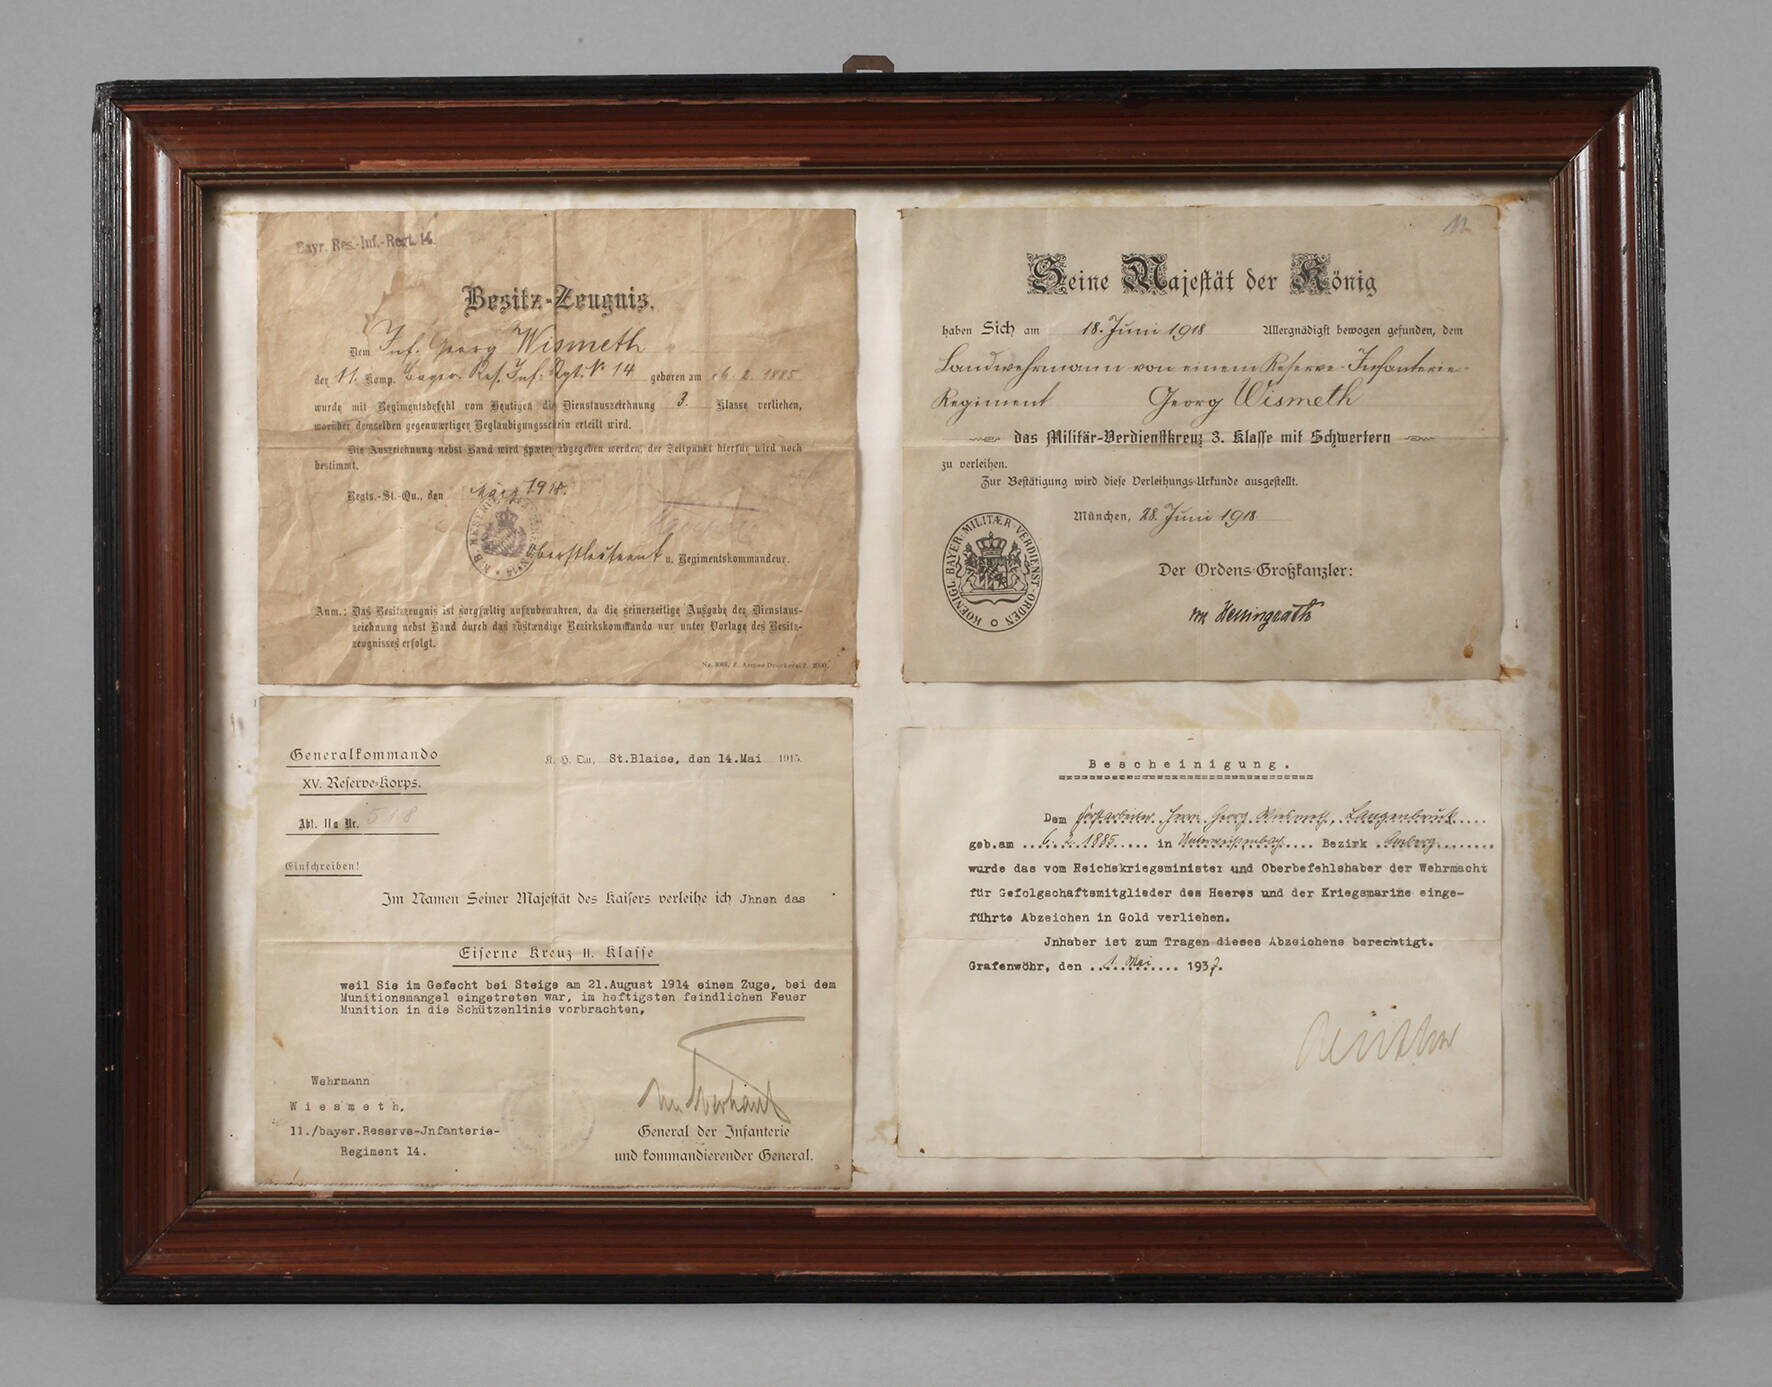 Bayr. Res.-Inf.-Regt. 14.
Besitz-Zeugnis.
Dem Inf. Georg Wismeth
der 11. Komp. Bayer. Res. Inf. Rgt. Nr. 14 geboren am 6. 2. 1885
wurde mit Regimentsbefehl vom Heutigen die Dienstauszeichnung 3. Klasse verliehen,
worüber demselben gegenwärtiger Beglaubigungsschein erteilt wird.
Die Auszeichnung nebst Band wird später abgegeben werden; der Zeitpunkt hierfür wird noch
bestimmt.
Regts.-St.-Qu., den März 1918.
Oberstleutnant u. Regimentskommandeur.
Anm.: Das Besitzzeugnis ist sorgfältig aufzubewahren, da die seinerzeitige Ausgabe der Dienstaus-
zeichnung nebst Band durch das zuständige Bezirkskommando nur unter Vorlage des Besitz-
zeugnisses erfolgt.
12
Seine Majestät der König
haben Sich am 18. Juni 1918 Allergnädigst bewogen gefunden, dem
Landwehrmann von einem Reserve-Infanterie-
Regiment Georg Wismeth
das Militär-Verdienstkreuz 3. Klasse mit Schwertern
zu verleihen.
Zur Bestätigung wird diese Verleihungs-Urkunde ausgestellt.
München, 28. Juni 1918
KOENIGL. BAYER. MILITÆR-VERDIENST-ORDEN
Der Ordens-Großkanzler:
Generalkommando
XV. Reserve-Korps.
Abt. IIa Nr. 518
Einschreiben!
K. H. Qu., St.Blaise, den 14.Mai 1915.
Im Namen Seiner Majestät des Kaisers verleihe ich Jhnen das
Eiserne Kreuz II. Klasse
weil Sie im Gefecht bei Steige am 21.August 1914 einem Zuge, bei dem
Munitionsmangel eingetreten war, im heftigsten feindlichen Feuer
Munition in die Schützenlinie vorbrachten,
Wehrmann
Wiesmeth,
11./bayer.Reserve-Jnfanterie-
Regiment 14.
General der Infanterie
und kommandierender General.
Bescheinigung.
Dem Forstarbeiter Herrn Georg Wismeth, Langenbruck
geb.am 6. 2. 1885 in Bezirk Amberg
wurde das vom Reichskriegsminister und Oberbefehlshaber der Wehrmacht
für Gefolgschaftsmitglieder des Heeres und der Kriegsmarine einge-
führte Abzeichen in Gold verliehen.
Jnhaber ist zum Tragen dieses Abzeichens berechtigt.
Grafenwöhr, den 1. Mai 1937.